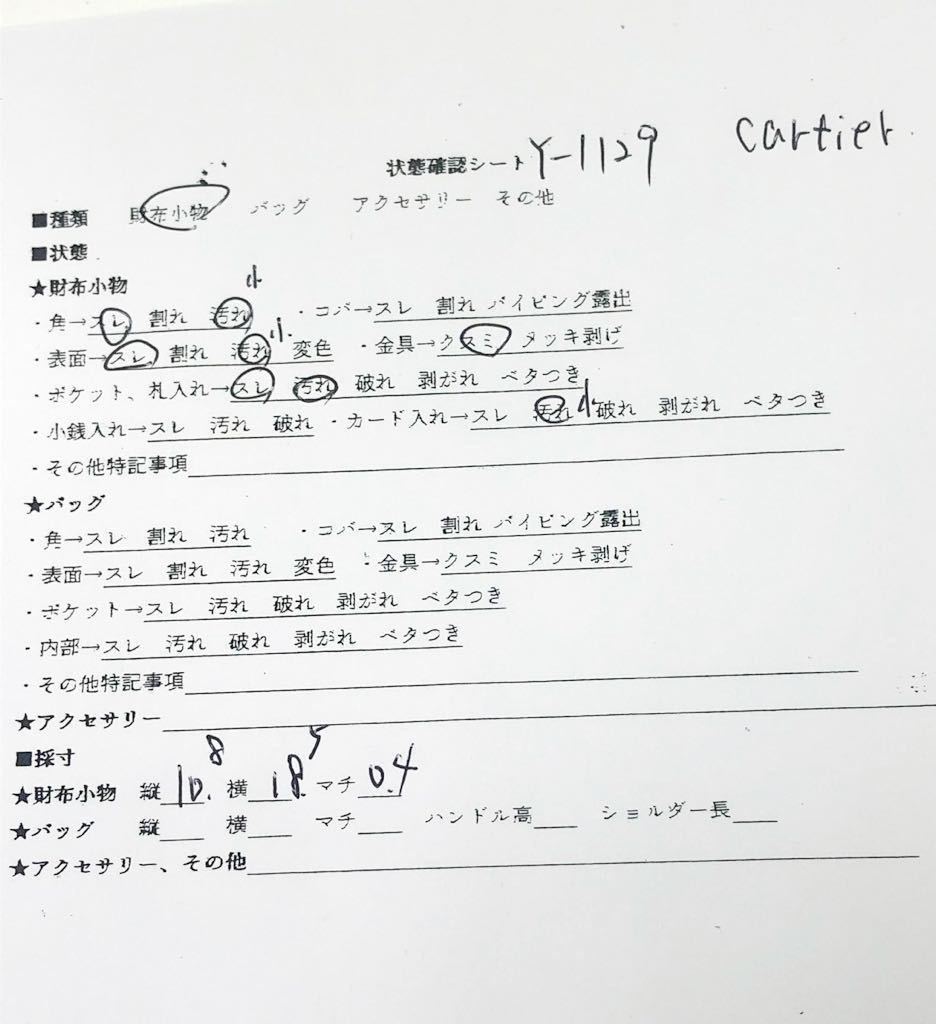 状態確認シート Y-1129 cartier
■種類 財布小物 バッグ アクセサリー その他
■状態
★財布小物
小
・角→スレ 割れ 汚れ ・コバ→スレ 割れ パイピング露出
小
・表面→スレ 割れ 汚れ 変色 ・金具→クスミ メッキ剥げ
・ポケット、札入れ→スレ 汚れ 破れ 剥がれ ベタつき
・小銭入れ→スレ 汚れ 破れ ・カード入れ→スレ 汚れ 小 破れ 剥がれ ベタつき
・その他特記事項
★バッグ
・角→スレ 割れ 汚れ ・コバ→スレ 割れ パイピング露出
・表面→スレ 割れ 汚れ 変色 ・金具→クスミ メッキ剥げ
・ポケット→スレ 汚れ 破れ 剥がれ ベタつき
・内部→スレ 汚れ 破れ 剥がれ ベタつき
・その他特記事項
★アクセサリー
■採寸
★財布小物 縦 10.8 横 18.5 マチ 0.4
★バッグ 縦 横 マチ ハンドル高 ショルダー長
★アクセサリー、その他